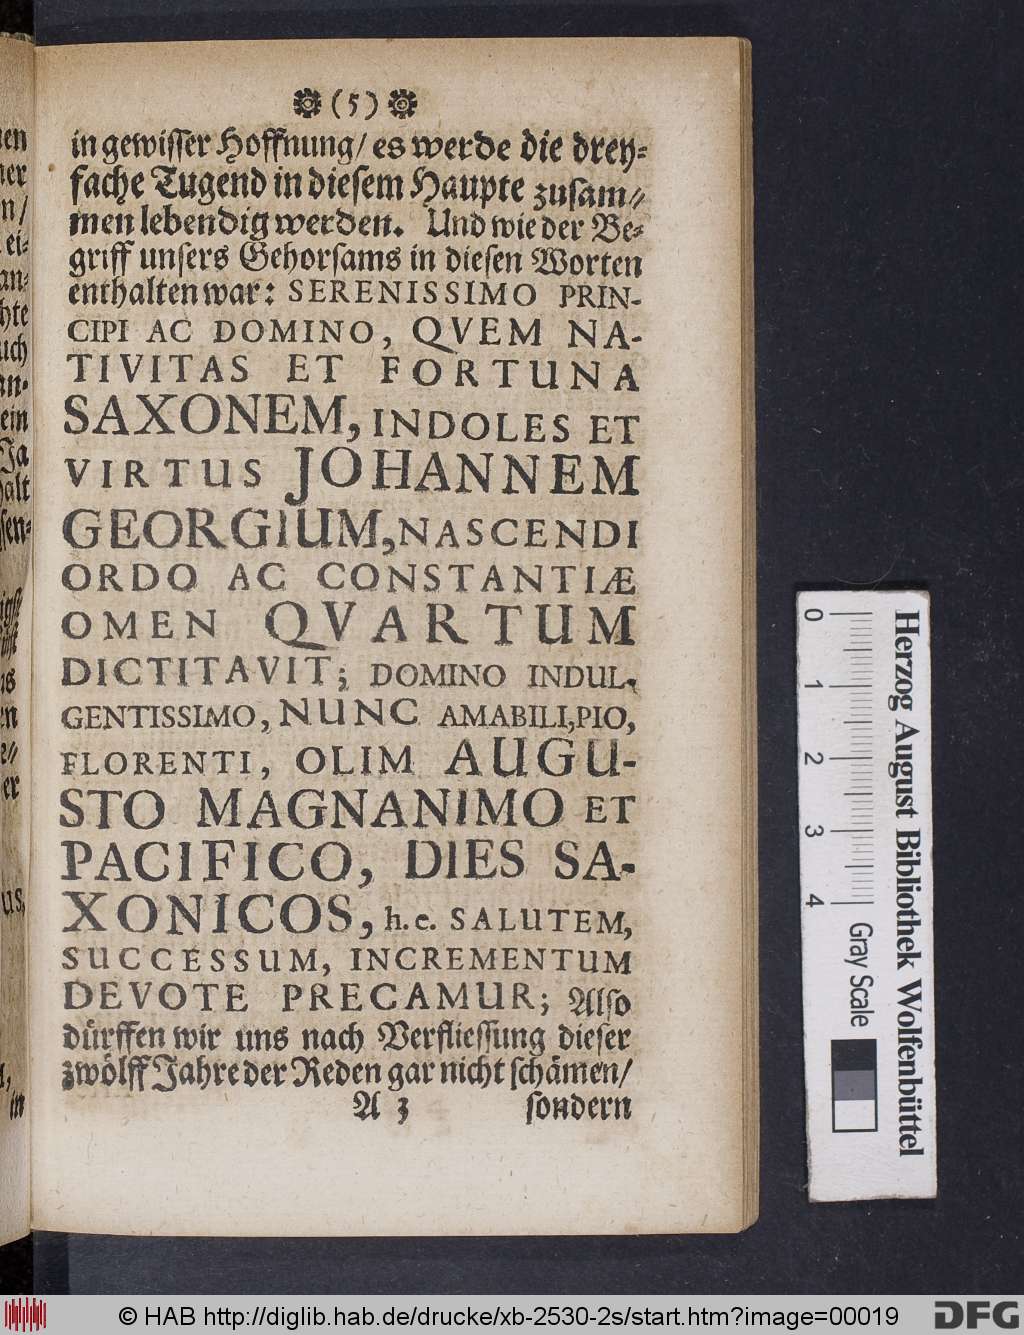 (5)
in gewisser Hoffnung/ es werde die drey-
fache Tugend in diesem Haupte zusam-
men lebendig werden. Und wie der Be-
griff unsers Gehorsams in diesen Worten
enthalten war: SERENISSIMO PRIN-
CIPI AC DOMINO, QVEM NA-
TIVITAS ET FORTUNA
SAXONEM, INDOLES ET
VIRTUS JOHANNEM
GEORGIUM, NASCENDI
ORDO AC CONSTANTIÆ
OMEN QVARTUM
DICTITAVIT; DOMINO INDUL-
GENTISSIMO, NUNC AMABILI, PIO,
FLORENTI, OLIM AUGU-
STO MAGNANIMO ET
PACIFICO, DIES SA-
XONICOS, h.e. SALUTEM,
SUCCESSUM, INCREMENTUM
DEVOTE PRECAMUR; Also
dürffen wir uns nach Verfliessung dieser
zwölff Jahre der Reden gar nicht schämen/
A 3 sondern
Herzog August Bibliothek Wolfenbüttel
0 1 2 3 4 Gray Scale
© HAB http://diglib.hab.de/drucke/xb-2530-2s/start.htm?image=00019
DFG